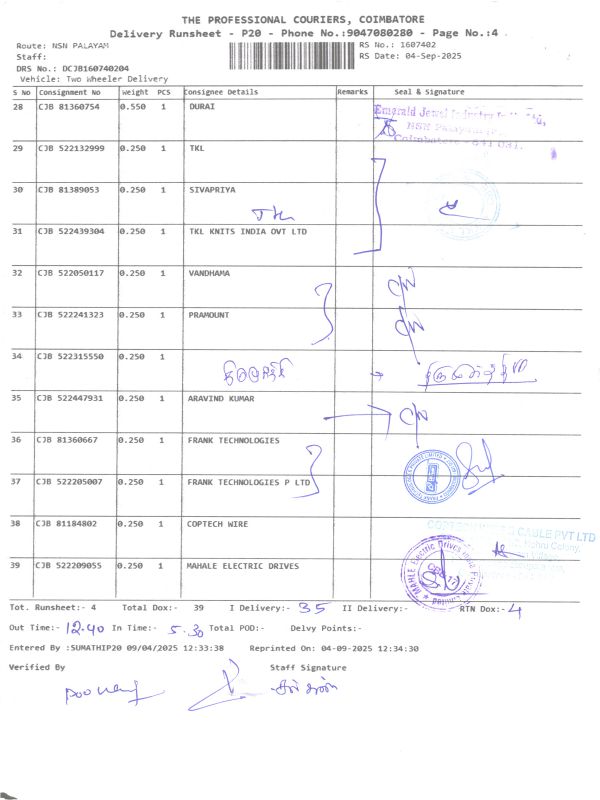 THE PROFESSIONAL COURIERS, COIMBATORE
Delivery Runsheet - P20 - Phone No.:9047080280 - Page No.:4
Route: NSN PALAYAM
RS No.: I607402
Staff:
RS Date: 04-Sep-2025
DRS No.: DCJB160740204
Vehicle: Two Wheeler Delivery
S No Consignment No Weight PCS Consignee Details Remarks Seal & Signature
28 CJB 81360754 0.550 1 DURAI
Emerald Jewel Industry
NSN Palayam,
Coimbatore - 641 031.
29 CJB 522132999 0.250 1 TKL
30 CJB 81389053 0.250 1 SIVAPRIYA
TKL
31 CJB 522439304 0.250 1 TKL KNITS INDIA OVT LTD
32 CJB 522050117 0.250 1 VANDHAMA
33 CJB 522241323 0.250 1 PRAMOUNT
34 CJB 522315550 0.250 1
35 CJB 522447931 0.250 1 ARAVIND KUMAR
36 CJB 81360667 0.250 1 FRANK TECHNOLOGIES
37 CJB 522205007 0.250 1 FRANK TECHNOLOGIES P LTD
38 CJB 81184802 0.250 1 COPTECH WIRE
CABLE PVT LTD
Colony,
39 CJB 522209055 0.250 1 MAHALE ELECTRIC DRIVES
MAHLE Electric Drives India Private Limited
Tot. Runsheet:- 4 Total Dox:- 39 I Delivery:- 35 II Delivery:- RTN Dox:- 4
Out Time:- 12.40 In Time:- 5.30 Total POD:- Delvy Points:-
Entered By :SUMATHIP20 09/04/2025 12:33:38 Reprinted On: 04-09-2025 12:34:30
Verified By Staff Signature